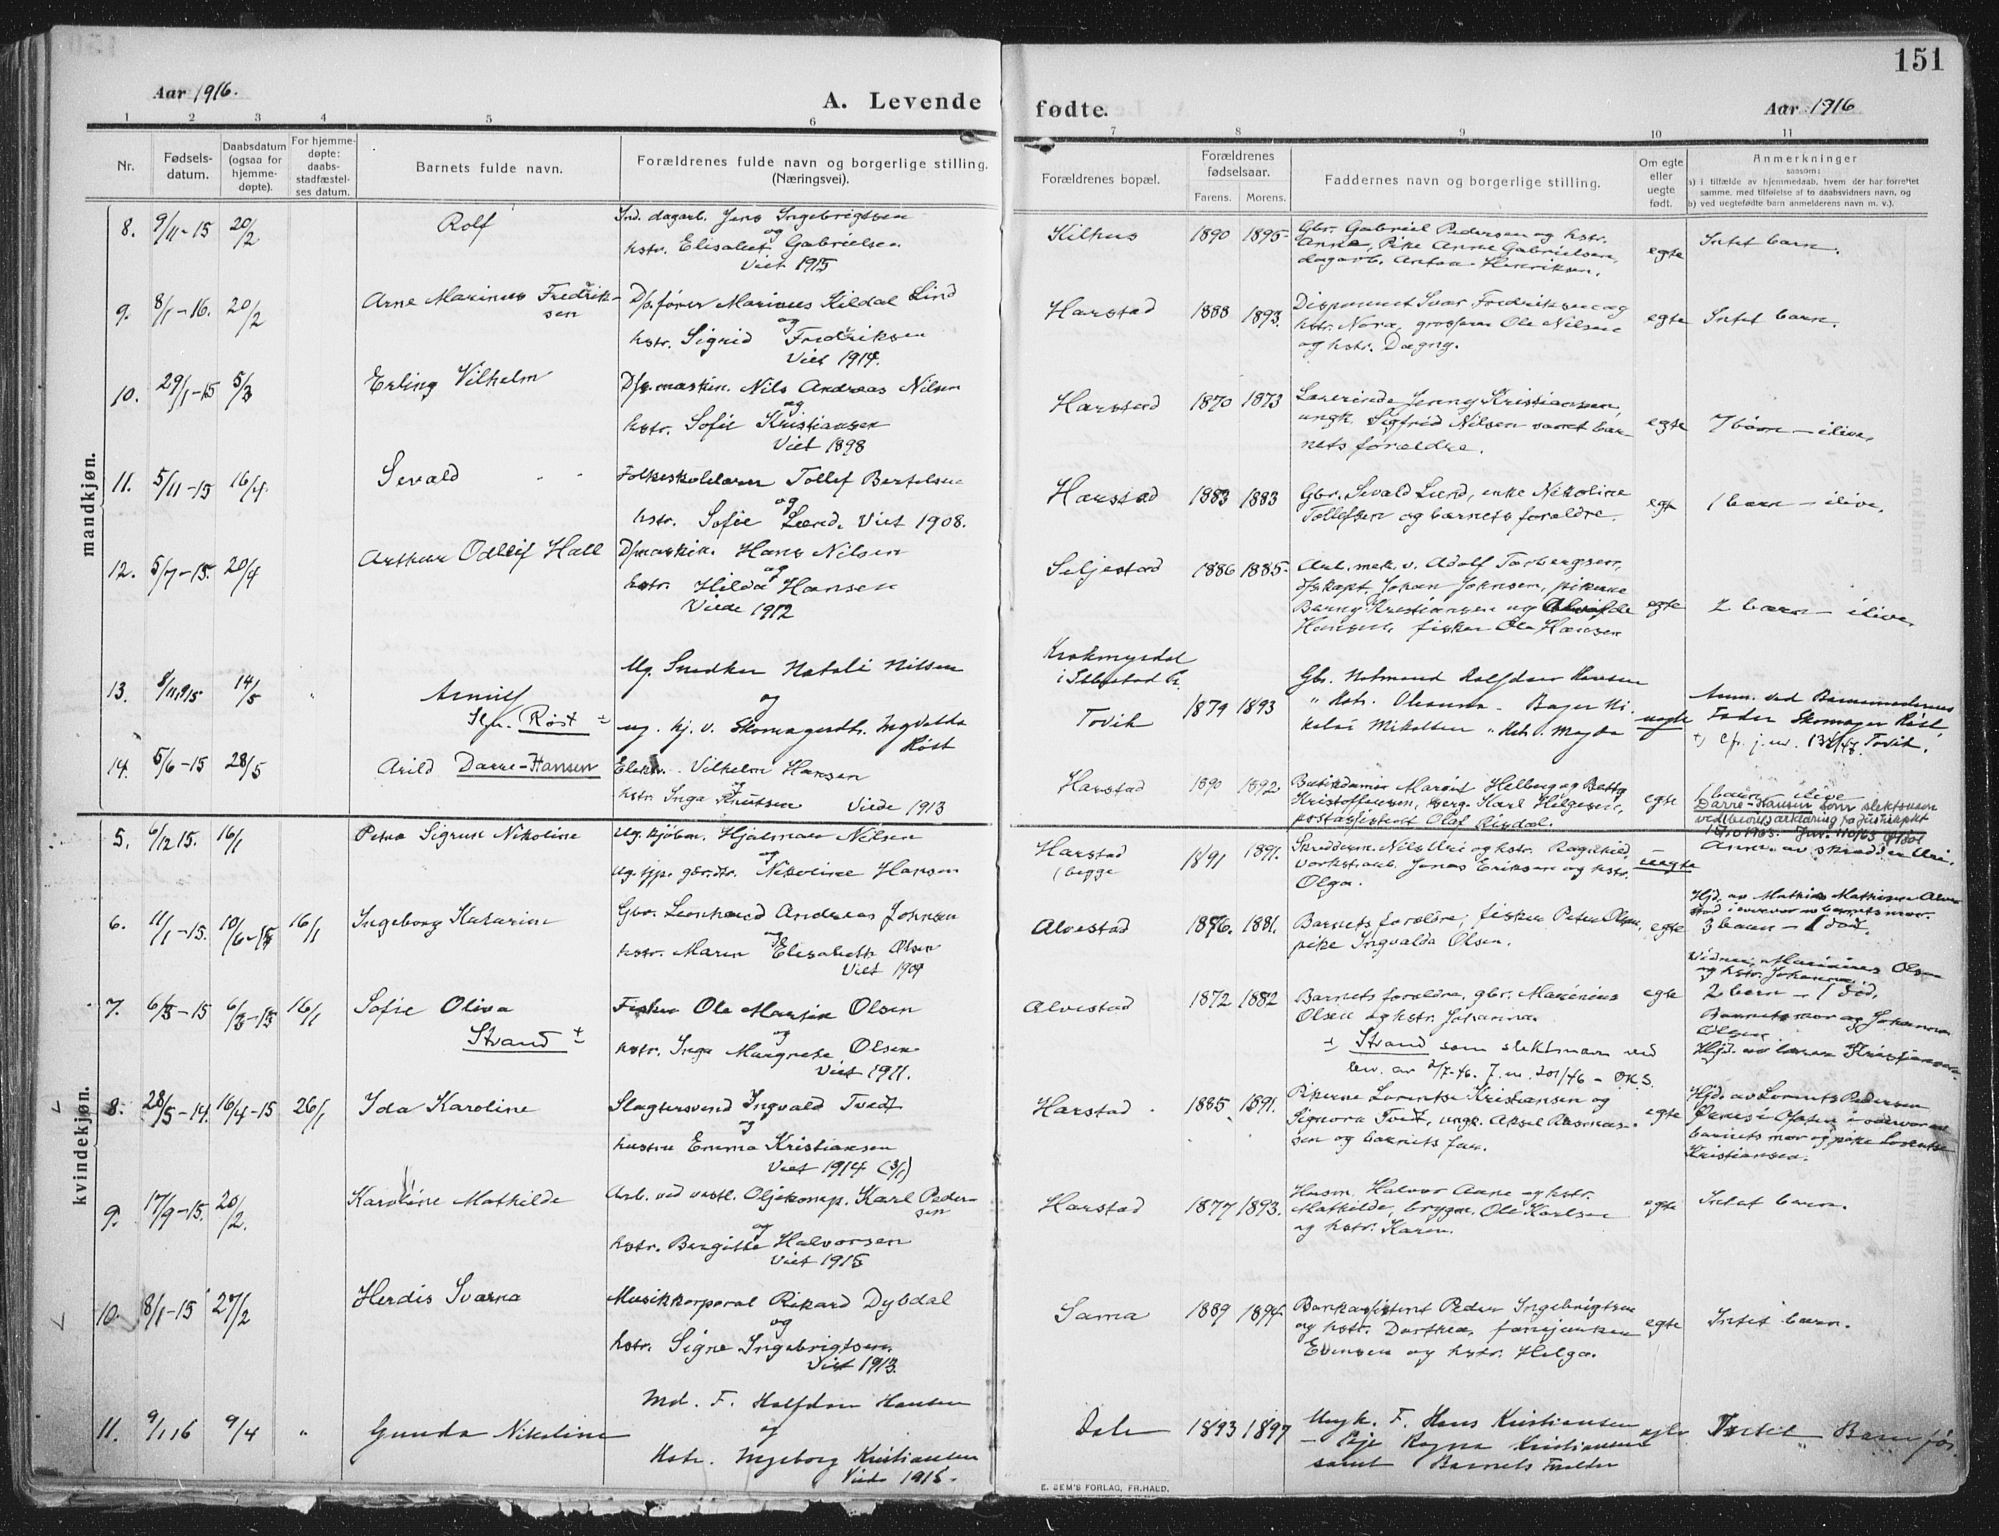 151
Aar 1916.
A. Levende
fødte.
Aar 1916
1 2 3 4 5 6
7 8 9 10 11
Nr.
Fødsels-
datum.
Daabsdatum
(ogsaa for
hjemme-
døpte).
For hjemme-
døpte:
daabs-
stadfæstel-
ses datum.
Barnets fulde navn.
Forældrenes fulde navn og borgerlige stilling.
(Næringsvei).
Forældrenes bopæl.
Forældrenes
fødselsaar.
Farens. Morens.
Faddernes navn og borgerlige stilling.
Om egte
eller
uegte
født.
Anmerkninger
saasom:
a) i tilfælde av hjemmedaab, hvem der har forrettet
samme, med tilføielse af to daabsvidners navn, og
b) ved uegtefødte barn anmelderens navn m. v.).
mandkjøn.
8. 9/11-15 20/2 Rolf
Ind. dagarb. Jens Ingebrigtsen
og
hstr. Elisabet Gabrielsen
Viet 1915
Kilhus 1890 1895
Gbr. Gabriel Pedersen og hstr.
Anna, Pike Anne Gabrielsen,
dagarb. Anton Henriksen.
egte
Intet barn.
9. 8/1-16. 20/2 Arne Marinus Fredrik-
sen
D/s fører Marinus Kildal Lind
og
hstr. Sigrid Fredriksen
Viet 1914.
Harstad 1888 1893.
Disponent Ivar Fredriksen og
hstr. Nora, grosserer Ole Nilsen
og hstr. Dagny.
egte
Intet barn.
10. 29/1-15 5/3 Erling Vilhelm
D/s maskin. Nils Andreas Nilsen
og
hstr. Sofie Kristiansen
Viet 1898
Harstad 1870 1873
Lærerinde Jenny Kristiansen,
ungk. Sigfrid Nilsen samt bar-
nets forældre.
egte
7 børn - ilive.
11. 5/11-15 16/4. Sevald
Folkeskolelærer Tollef Bertelsen
og
hstr. Sofie Lund. Viet 1908.
Harstad 1883 1883
Gbr. Sevald Lund, enke Nikoline
Tollefsen og barnets forældre.
egt
1 barn - ilive.
12. 5/7-15. 20/4 Arthur Odleif Hall
D/maskin. Hans Nilsen
og
hstr. Hilda Hansen
Viede 1912
Seljestad 1886 1885
Arb. mek. v. Adolf Torbergsen,
d/skapt. Johan Johnsen, pikerne
Berny Kristiansen og
Hansen, fisker Ole Hansen
egte
2 barn - ilive.
13. 8/11 915 14/5 " Arnulf
Røst ±
Ug. Snedker Natali Nilsen
og
ug. hj. v. Skomagerdtr. Ingvalda
Røst
Krokmyrdal
Tovik 1879 1893
Gbr. Hotmund Halfdan Hansen
" Hstr. Oleanna - Bager Ni-
kolai Mikalsen " Hstr. Magda
uegte
Anm. ved Barnemoderens
Fader Skomager Røst,
Tovik.
14. 5/6-15 28/5 Arild Darre-Hansen
Elektr. Vilhelm Hansen
og
hstr. Inga Knutsen Viede 1913
Harstad 1890 1892
Butikdamer Margit Hellberg og Betty
Kristoffersen, berg. Karl Helgesen,
postassistent Olaf Rigdal.
egte
1 barn - ilive
Darre-Hansen som slektsnavn
kvindekjøn.
5. 6/12 15. 16/1 Petra Sigrun Nikoline
Ug. kjøbm. Hjalmar Nilsen
og
ug. pp. gbr.dtr. Nikoline Hansen
Harstad
(begge 1891 1891.
Skredderm. Nils Uri og hstr. Ragnhild,
verkstarb. Jonas Eriksen og hstr.
Olga.
uegte
Anm. av skrædder Uri.
6. 11/1-15. 10/6-15 16/1 Ingeborg Katarina
Gbr. Leonhard Andreas Johnsen
og
hstr. Maren Elisabeth Olsen
Viet 1904
Alvestad 1876. 1881.
Barnets forældre, fisker Peter Olsen,
pike Ingvalda Olsen.
egte
Hjd. av Mathis Mathisen Alve-
stad i overvær av barnets mor.
3 barn - 1 død.
Vidner, Marinius Olsen
og hstr. Johanna.
7. 6/3-15 6/3-15 16/1 Sofie Oliva
Strand ±
Fisker Ole Martin Olsen
og
hstr. Inga Margrete Olsen
Viet 1911.
Alvestad 1872 1882
Barnets forældre, gbr. Marinius
Olsen og hstr. Johanna.
± Strand som slektsnavn ved
bev. av 2/7-46. J. nr. 201/46 - O.K.S.
egte
2 barn - 1 død.
Barnets mor og Johanna
Olsen.
Hjd. av lærer Kristiansen.
8. 28/5-14. 16/4-15 26/1 Ida Karoline
Slagtersvend Ingvald Tvedt
og
hustru Emma Kristiansen
Viet 1914 (3/1)
Harstad. 1885 1891.
Pikerne Lorentse Kristiansen og
Signora Tveit, ungk. Aksel Rasmus-
sen og barnets far.
egte
Hjd. av Lorents Pedersen
Øynes i Ofoten i overvær av
barnets mor og pike Lorentse
Kristiansen.
9. 17/9-15. 20/2. Karoline Mathilde
Arb. ved vestl. Oljekomp. Karl Peder-
sen
og
hstr. Bergitte Halvorsen
Viet 1915
Harstad 1877 1893.
Husm. Halvor Aane og hstr.
Mathilde, brygm. Ole Karlsen
og hstr. Karen.
egte
Intet barn.
10. 8/1-15 27/2 Herdis Svarna
Musikkorporal Rikard Dybdal
og
hstr. Signe Ingebrigtsen.
Viet 1913
Sama 1889 1894.
Bankassistent Peder Ingebrigtsen
og hstr. Dorthea, fanejunker
Evensen og hstr. Helga.
egte
Intet barn.
11. 9/1 16 9/4 " Gunda Nikoline
Md. F. Halfdan Hansen
og
Hstr. Ingeborg Kristiansen
Viet 1915.
Dale 1893 1897
Ungk. F. Hans Kristiansen
- Pige Ragna Kristiansen
samt Barnets Fader
egte
Intet Barn før.
E. SEM'S FORLAG, FR.HALD.